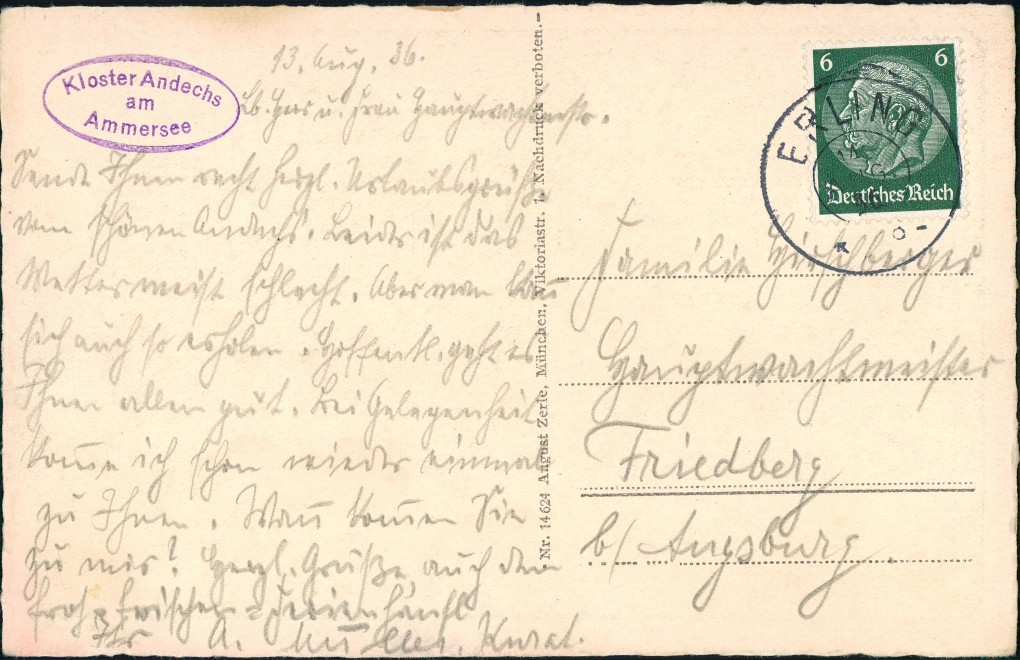 Kloster Andechs
am
Ammersee
13. Aug. 36.
Lb. Herr u. Frau Hauptwachtmstr.
Sende Ihnen recht herzl. Urlaubsgrüße
vom schönen Andechs. Leider ist das
Wetter meist schlecht. Aber man kan̄
sich auch so erholen. Hoffentl. geht es
Ihnen allen gut. Bei Gelegenheit
kom̄e ich schon wieder einmal
zu Ihnen. Wan̄ kom̄en Sie
zu mir? Herzl. Grüße auch dem
froh-frischen
Ihr A. Müller, Kurat.
Nr. 14624 August Zerle, München, Viktoriastr. 1. Nachdruck verboten.
6 6
Deutsches Reich
ERLING
Familie Hirschberger
Hauptwachtmeister
Friedberg
b/ Augsburg.